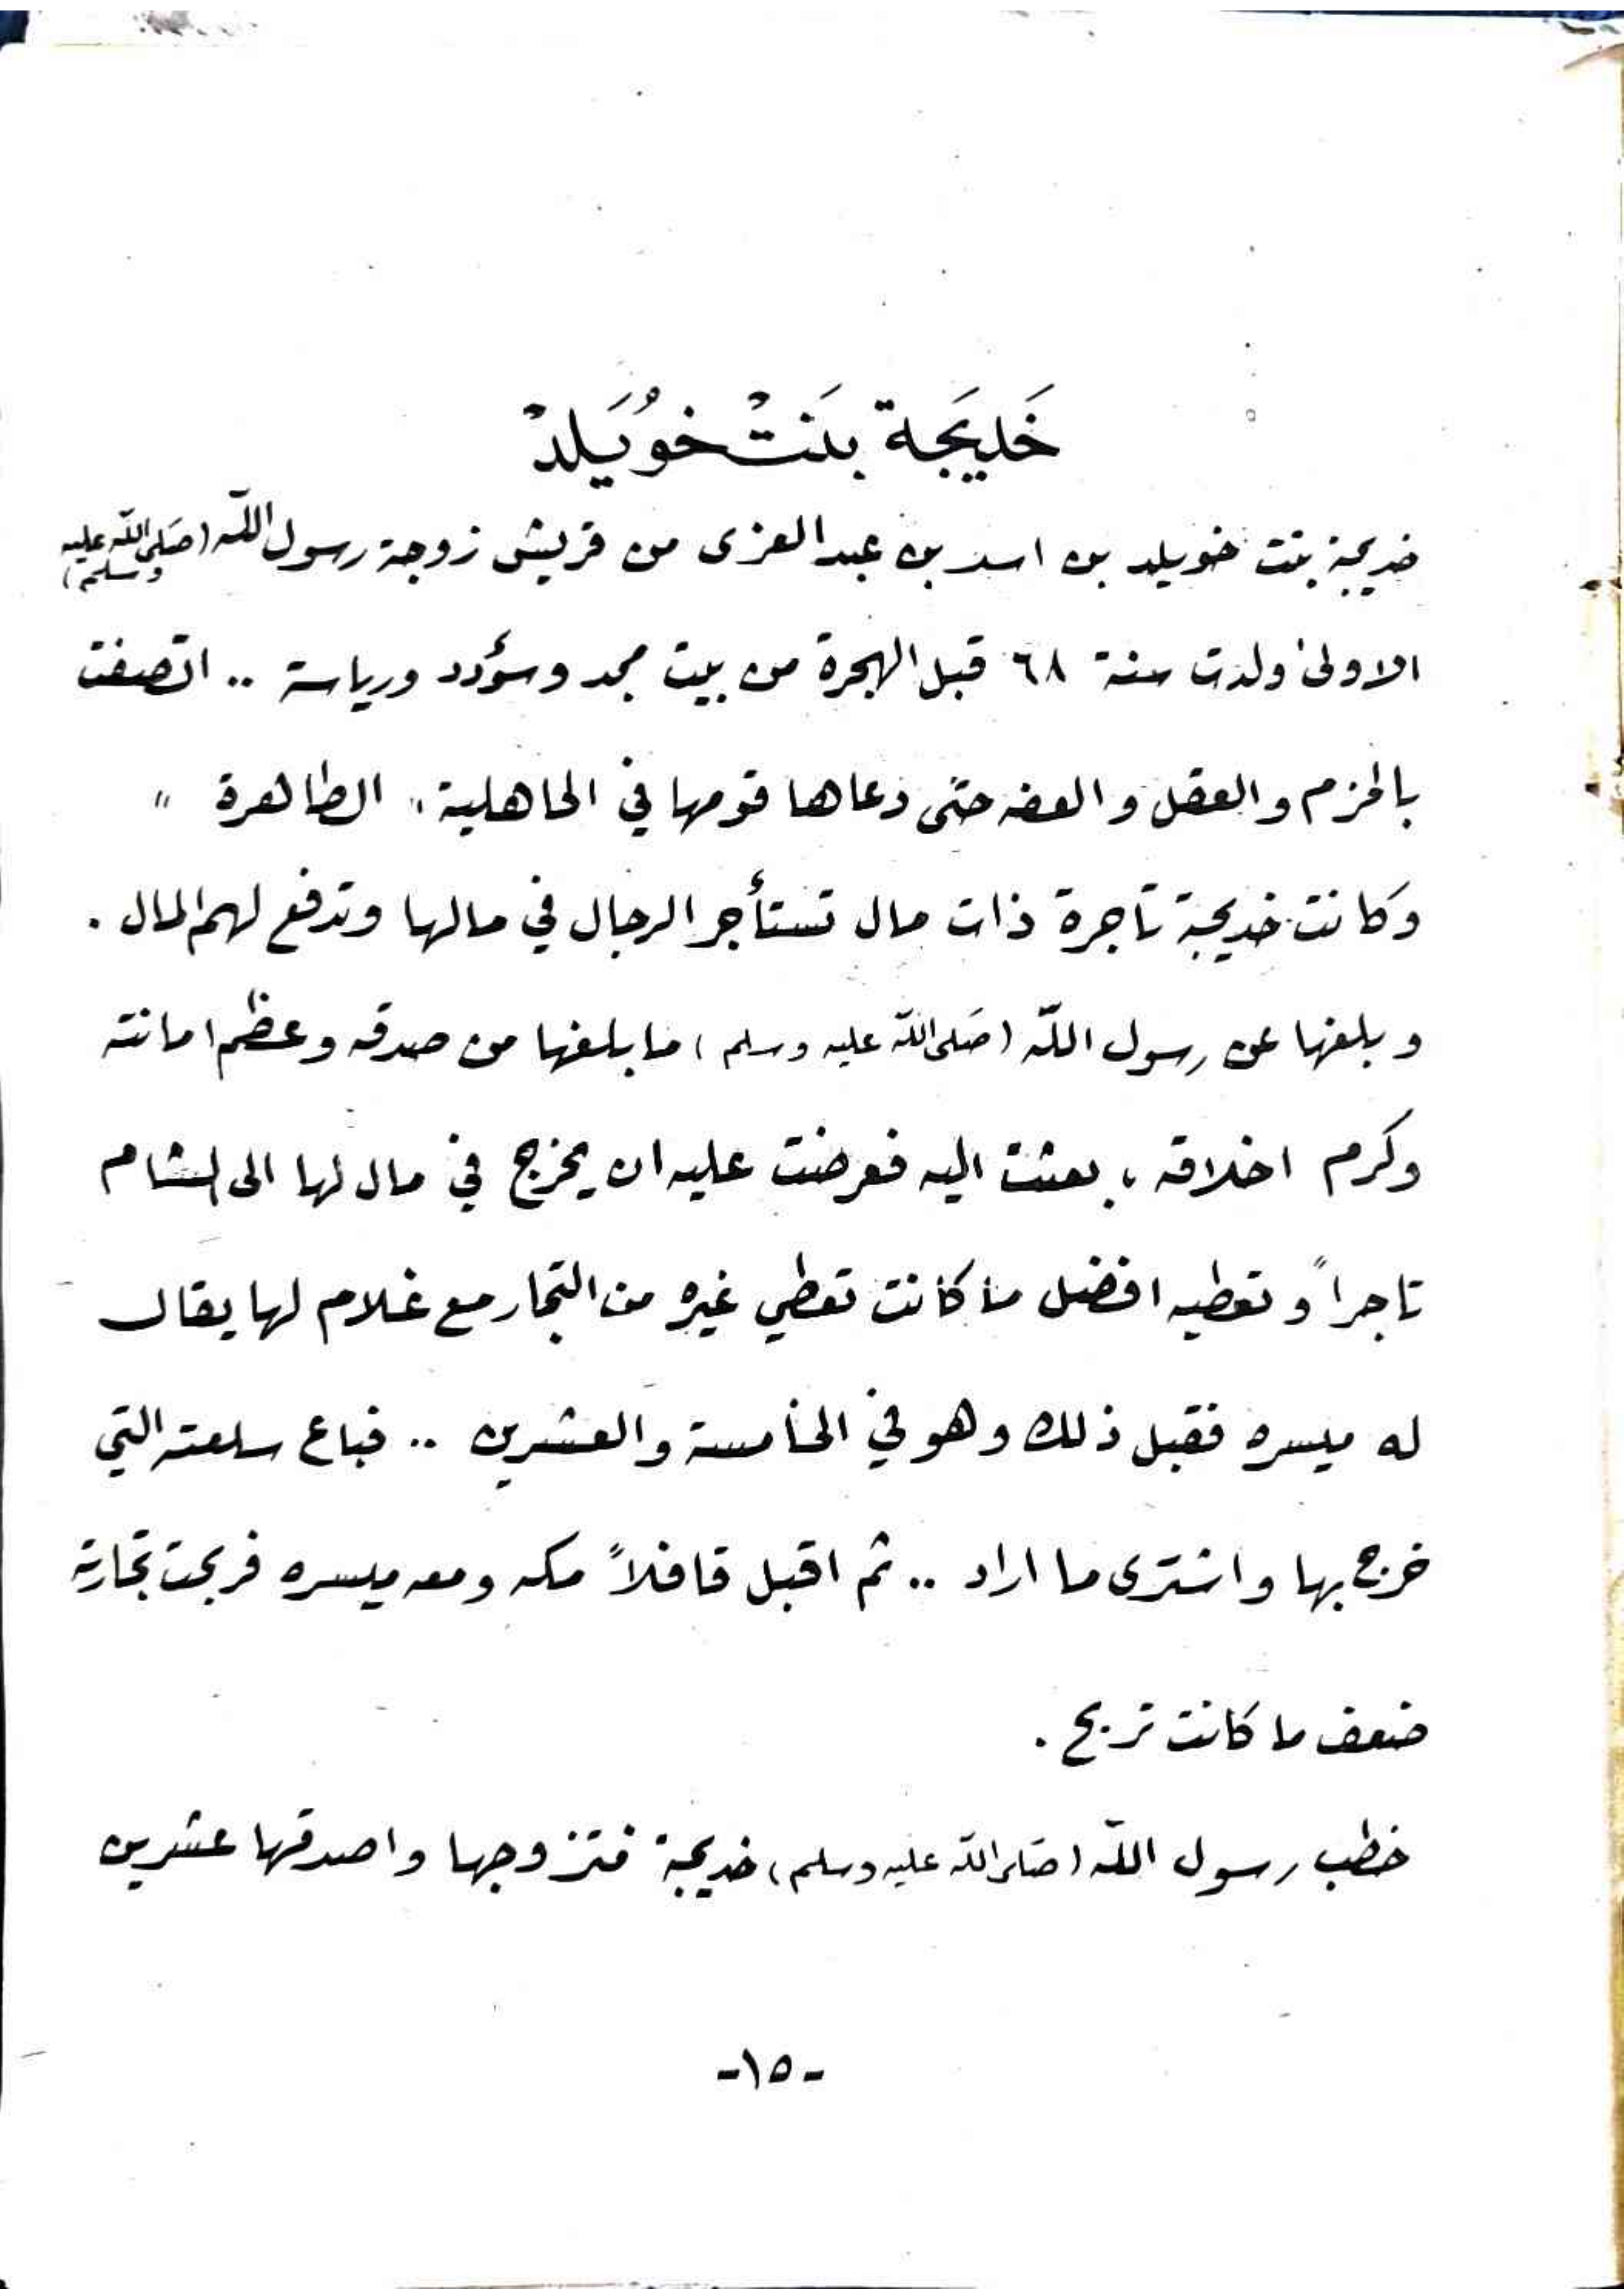 خَديَجة بَنتْ خوُيَلدْ
خديجة بنت خويلد بن اسد بن عبد العزى من قريش زوجة رسول اللّه (صَلى اللّه عليه وسلم)
الاولى ولدت سنة ٦٨ قبل الهجرة من بيت مجد وسؤدد ورياسة .. اتصفت
بالحزم والعقل والعفه حتى دعاها قومها في الجاهلية " الطاهرة "
وكانت خديجة تاجرة ذات مال تستأجر الرجال في مالها وتدفع لهم المال .
وبلغها عن رسول اللّه (صَلى اللّه عليه وسلم) ما بلغها من صدقه وعظم امانته
وكرم اخلاقه ، بعثت اليه فعرضت عليه ان يخرج في مال لها الى الشام
تاجراً وتعطيه افضل ما كانت تعطي غيره من التجار مع غلام لها يقال
له ميسره فقبل ذلك وهو في الخامسة والعشرين .. فباع سلعته التي
خرج بها واشترى ما اراد .. ثم اقبل قافلاً مكه ومعه ميسره فربحت تجارته
ضعف ما كانت تربح .
خطب رسول اللّه (صَلى اللّه عليه وسلم) خديجة فتزوجها واصدقها عشرين
-١٥-